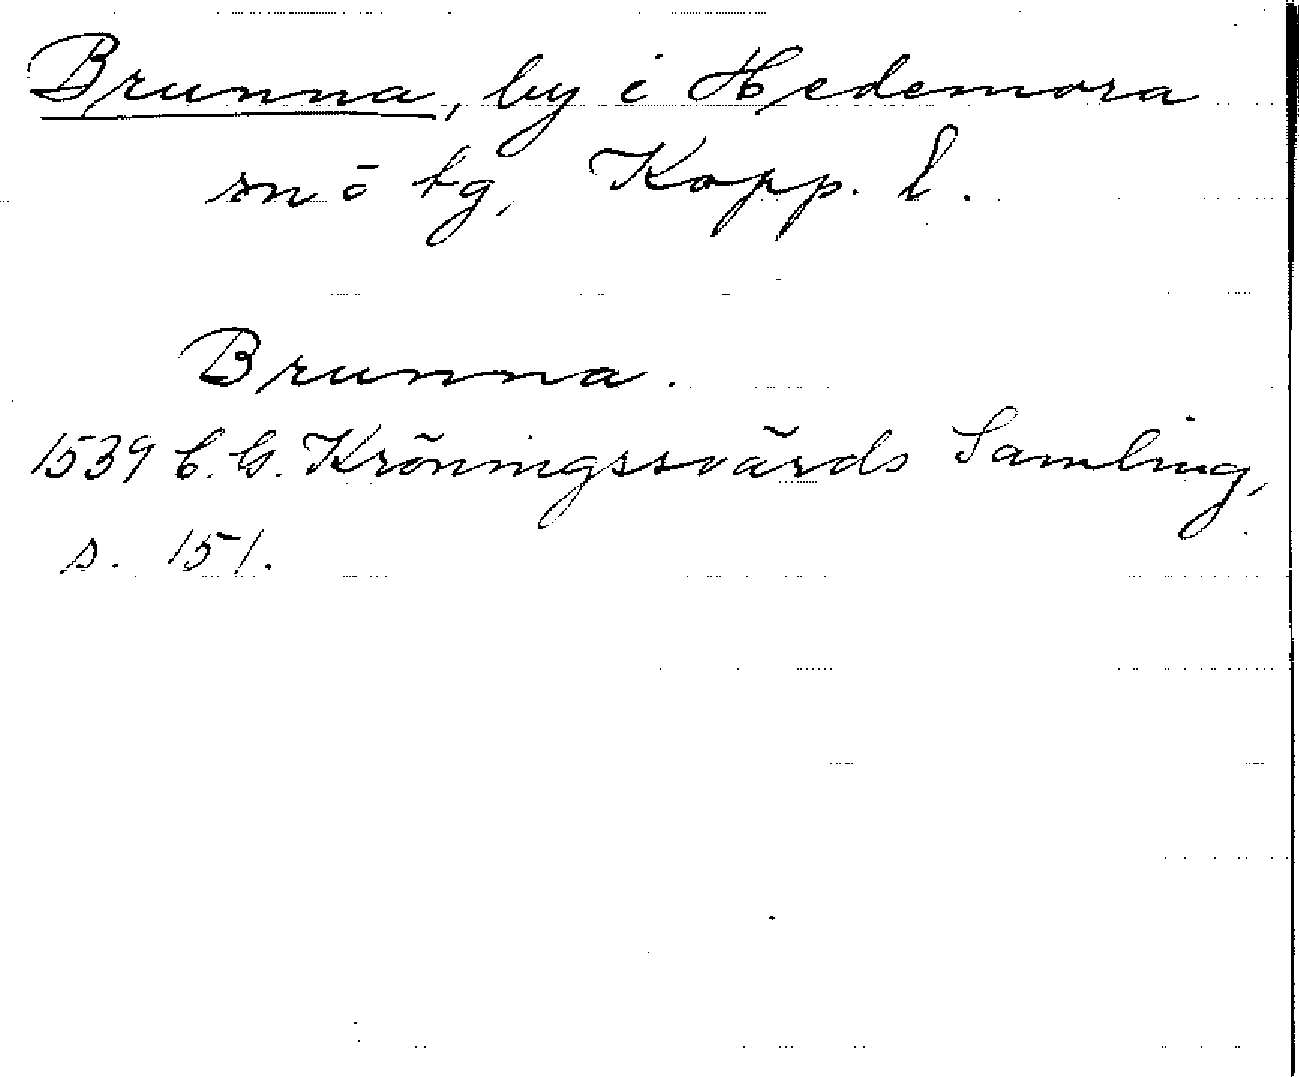 Brunna, by i Hedemora
sn ö tg, Kopp. l.
Brunna.
1539 C.G. Kröningssvärds Samling,
s. 151.